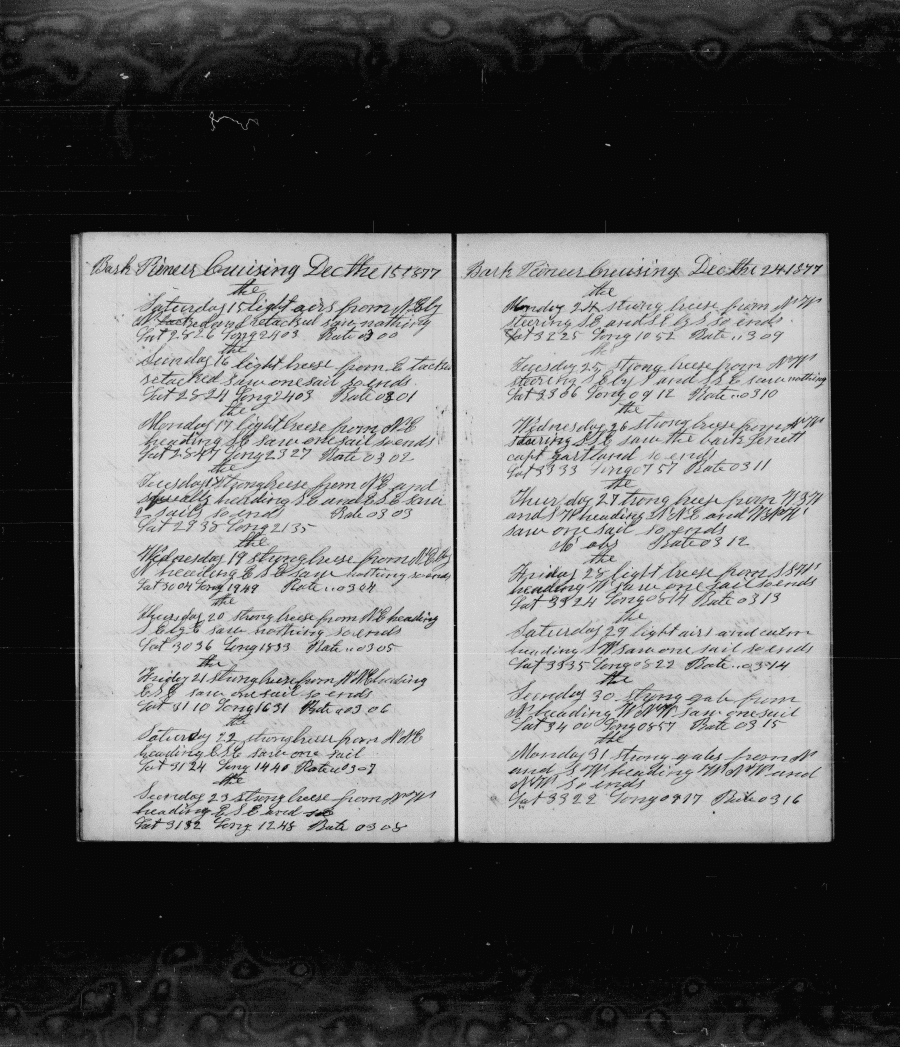 Bark Pioneer Cruising Dec the 15 1877
the
Saturday 15 light airs from N E by
N tacked and retacked saw nothing
Lat 28 26 Long 24 03 Rate 03 00
the
Sunday 16 light breese from E tacked
retacked saw one sail so ends
Lat 28 24 Long 24 03 Rate 03 01
the
Monday 17 light breese from N E
heading S E saw one sail so ends
Lat 28 47 Long 23 27 Rate 03 02
the
Tuesday 18 strong breese from N E and
squally heading S E and E S E saw
sails so ends Rate 03 03
Lat 29 38 Long 21 35
the
Wednesday 19 strong breese from N E by
N heading E S E saw nothing so ends
Lat 30 04 Long 19 49 Rate .. 03 04
the
Thursday 20 strong breese from N E heading
S E by E saw nothing so ends
Lat 30 36 Long 18 33 Rate .. 03 05
the
Friday 21 strong breese from N N E heading
E S E saw one sail so ends
Lat 31 10 Long 16 31 Rate .. 03 06
the
Saturday 22 strong breese from N N E
heading E S E saw one sail
Lat 31 24 Long 14 40 Rate .. 03 07
the
Sunday 23 strong breese from N N W
heading E S E and
Lat 31 32 Long 12 48 Rate 03 08
Bark Pioneer Cruising Dec the 24 1877
the
Monday 24 strong breese from N W
steering S E and S E by S So ends
Lat 32 25 Long 10 52 Rate .. 3 09
the
Tuesday 25 strong breese from N W
steering S E by S and S S E saw nothing
Lat 33 06 Long 09 12 Rate .. 03 10
the
Wednesday 26 strong breese from N W
steering S S E saw the bark
capt so ends
Lat 33 33 Long 07 57 Rate 03 11
the
Thursday 27 strong breese from W S W
and S W heading and
saw one sail so ends
No obs Rate 03 12
the
Friday 28 light breese from S S W
heading W saw one sail so ends
Lat 33 24 Long 08 14 Rate 03 13
the
Saturday 29 light airs and calm
heading S W saw one sail so ends
Lat 33 35 Long 08 22 Rate .. 03 14
the
Sunday 30 strong gale from
N heading W N W saw one sail
Lat 34 00 Long 08 57 Rate 03 15
the
Monday 31 strong gales from N
and S W heading W N W and
N W So ends
Lat 33 22 Long 09 17 Rate 03 16